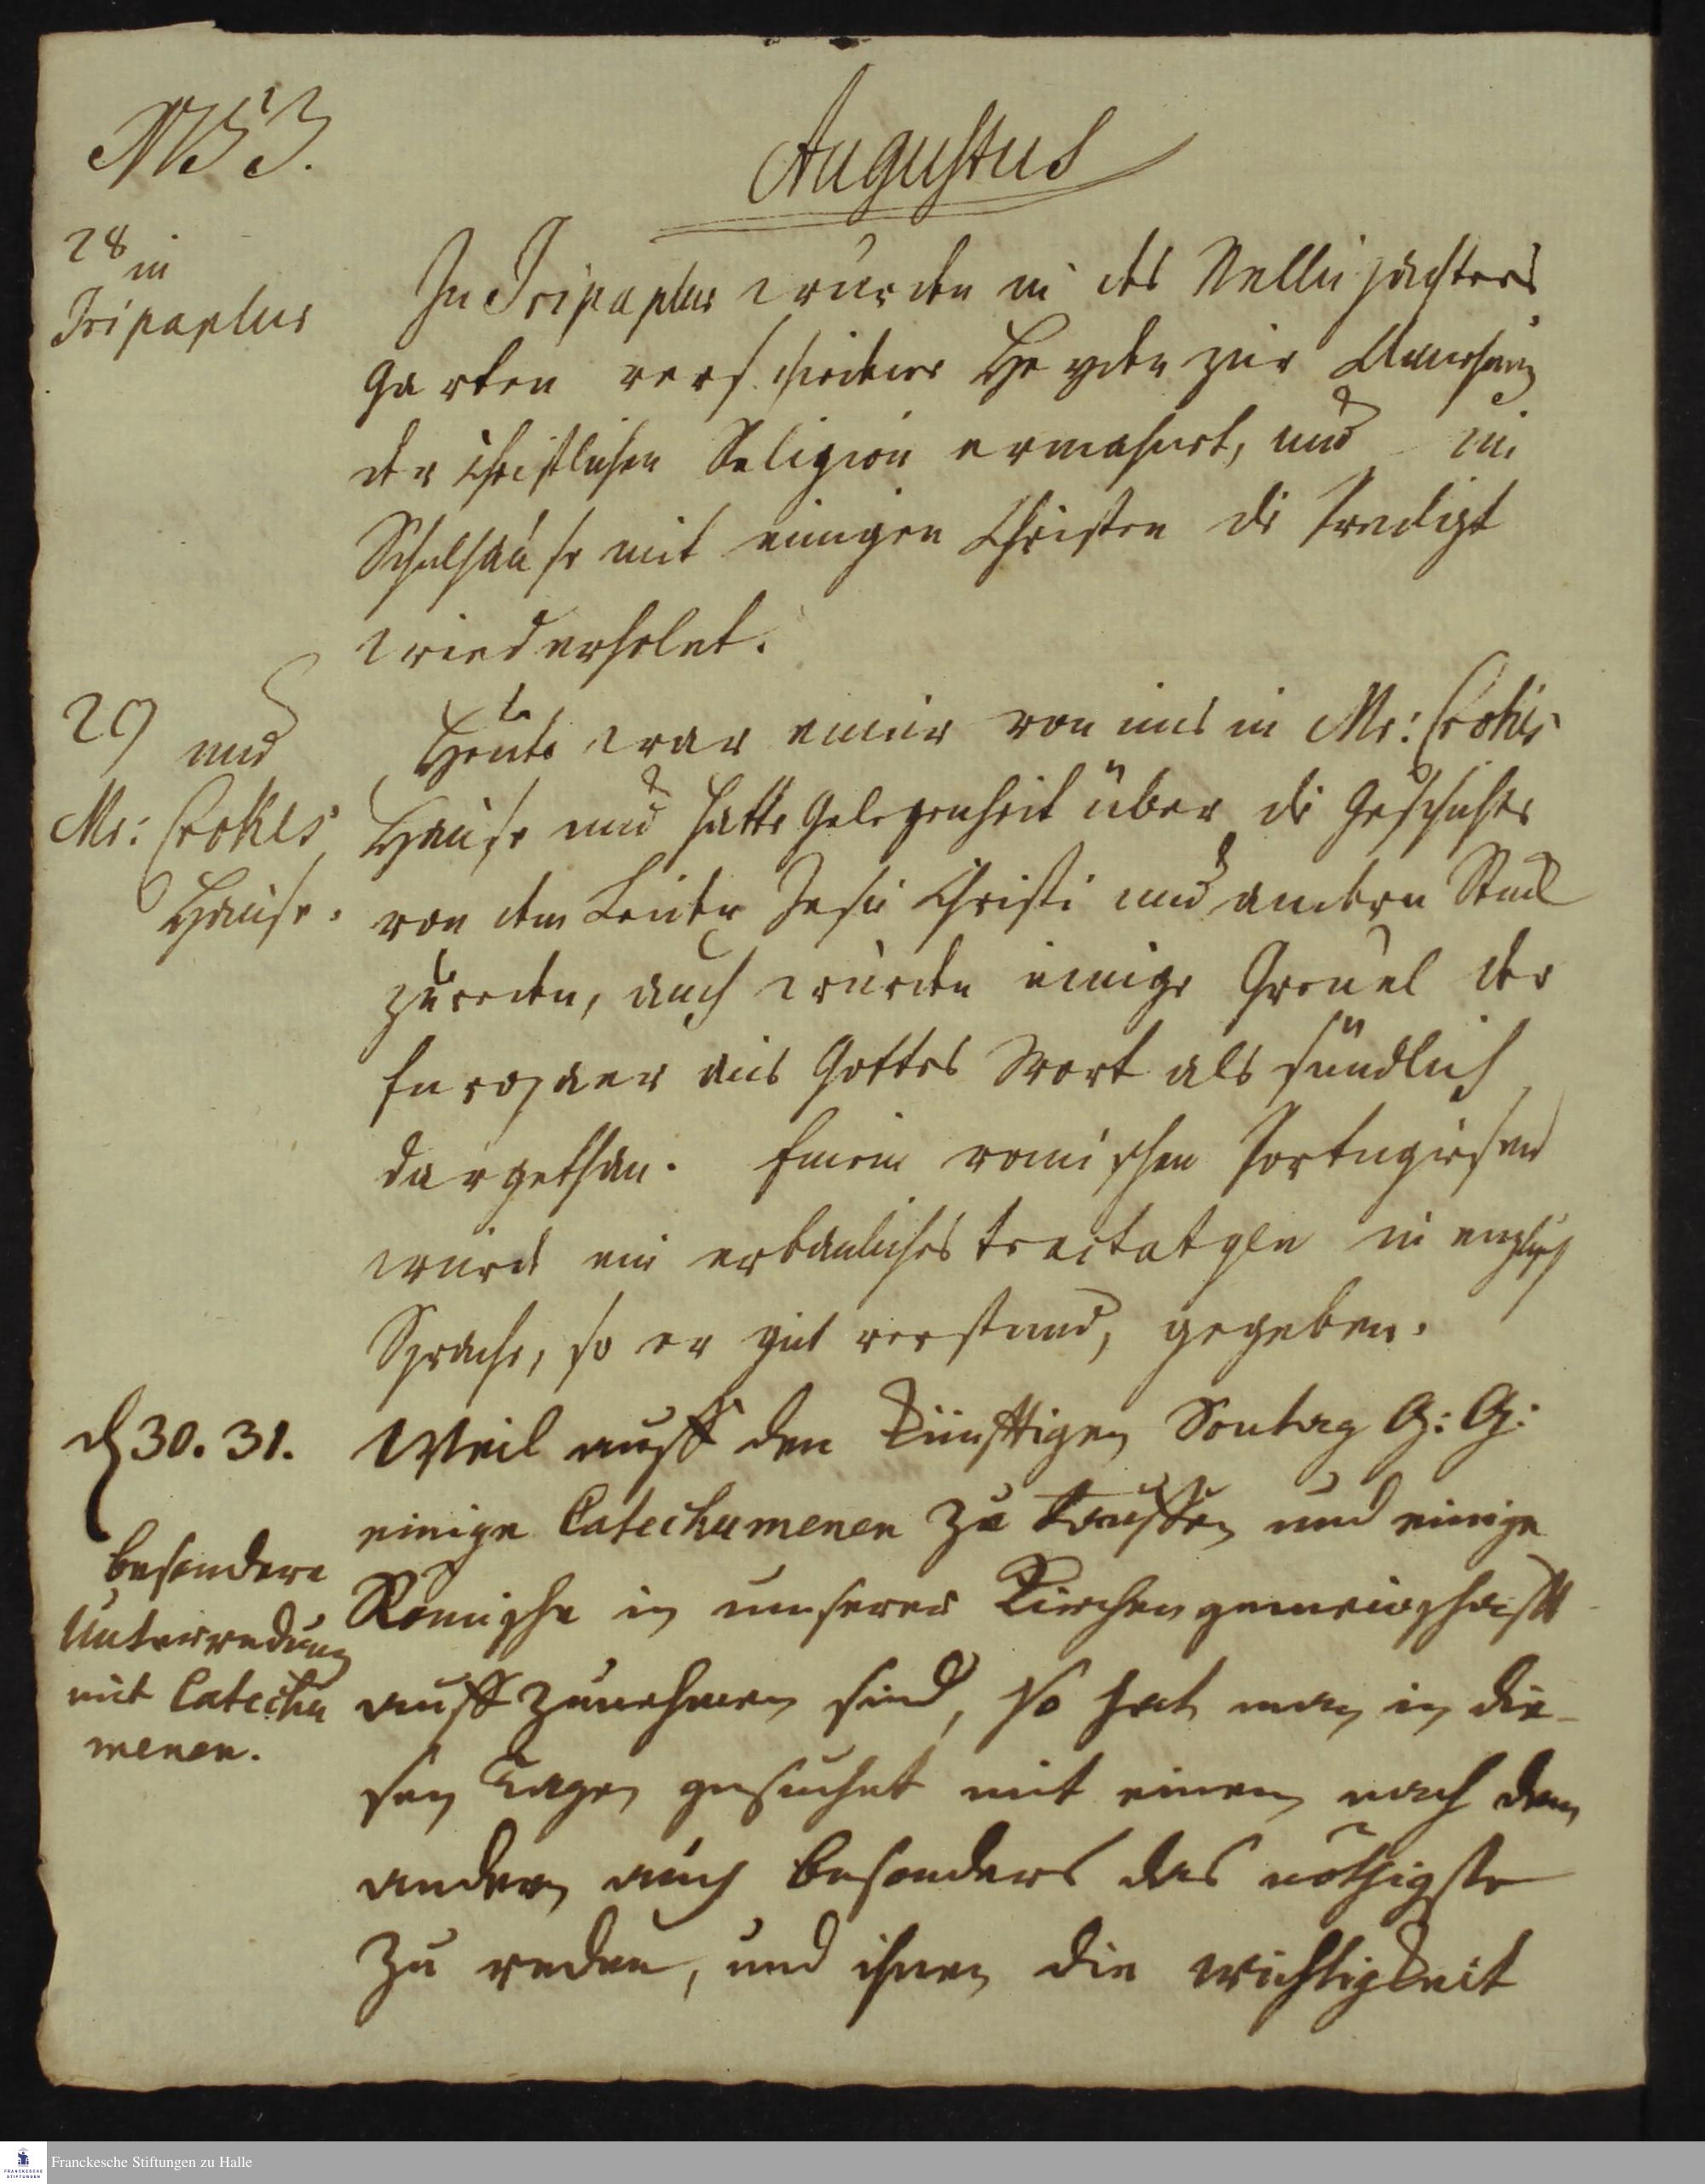 1753.
Augustus
28
in
Tripaplur
In Tripaplur wurden in des Nellu pachters
Garten verschiedene Heyden zur
der christlichen Religion ermahnet, und im
Schulhause mit einigen Christen die Predigt
wiederholet.
29
und
Mr: Crokes
Hause.
Heute war einer von uns in Mr: Crokes
Hause und hatte Gelegenheit über die Geschichte
von dem Leiden Jesu Christi und andern
zu reden, auch wurden einige Greuel der
Europaer aus Gottes Wort als sündlich
dargethan. Einem romischen Portugiesen
wurd ein erbauliches tractatgen in englisch
Sprache, so er gut verstand, gegeben.
d 30. 31.
besondere
Unterredung
mit Catechu
menen.
Weil auff den künfftigen Sontag G: G:
einige Catechumenen zu tauffen und einige
Römische in unserer Kirchengemeinschafft
auffzunehmen sind, so hat man in die-
sen Tagen gesuchet mit einem nach dem
andern auch besonders das nöthigste
zu reden, und ihnen die wichtigkeit
Franckesche Stiftungen zu Halle
FRANCKESCHE
STIFTUNGEN